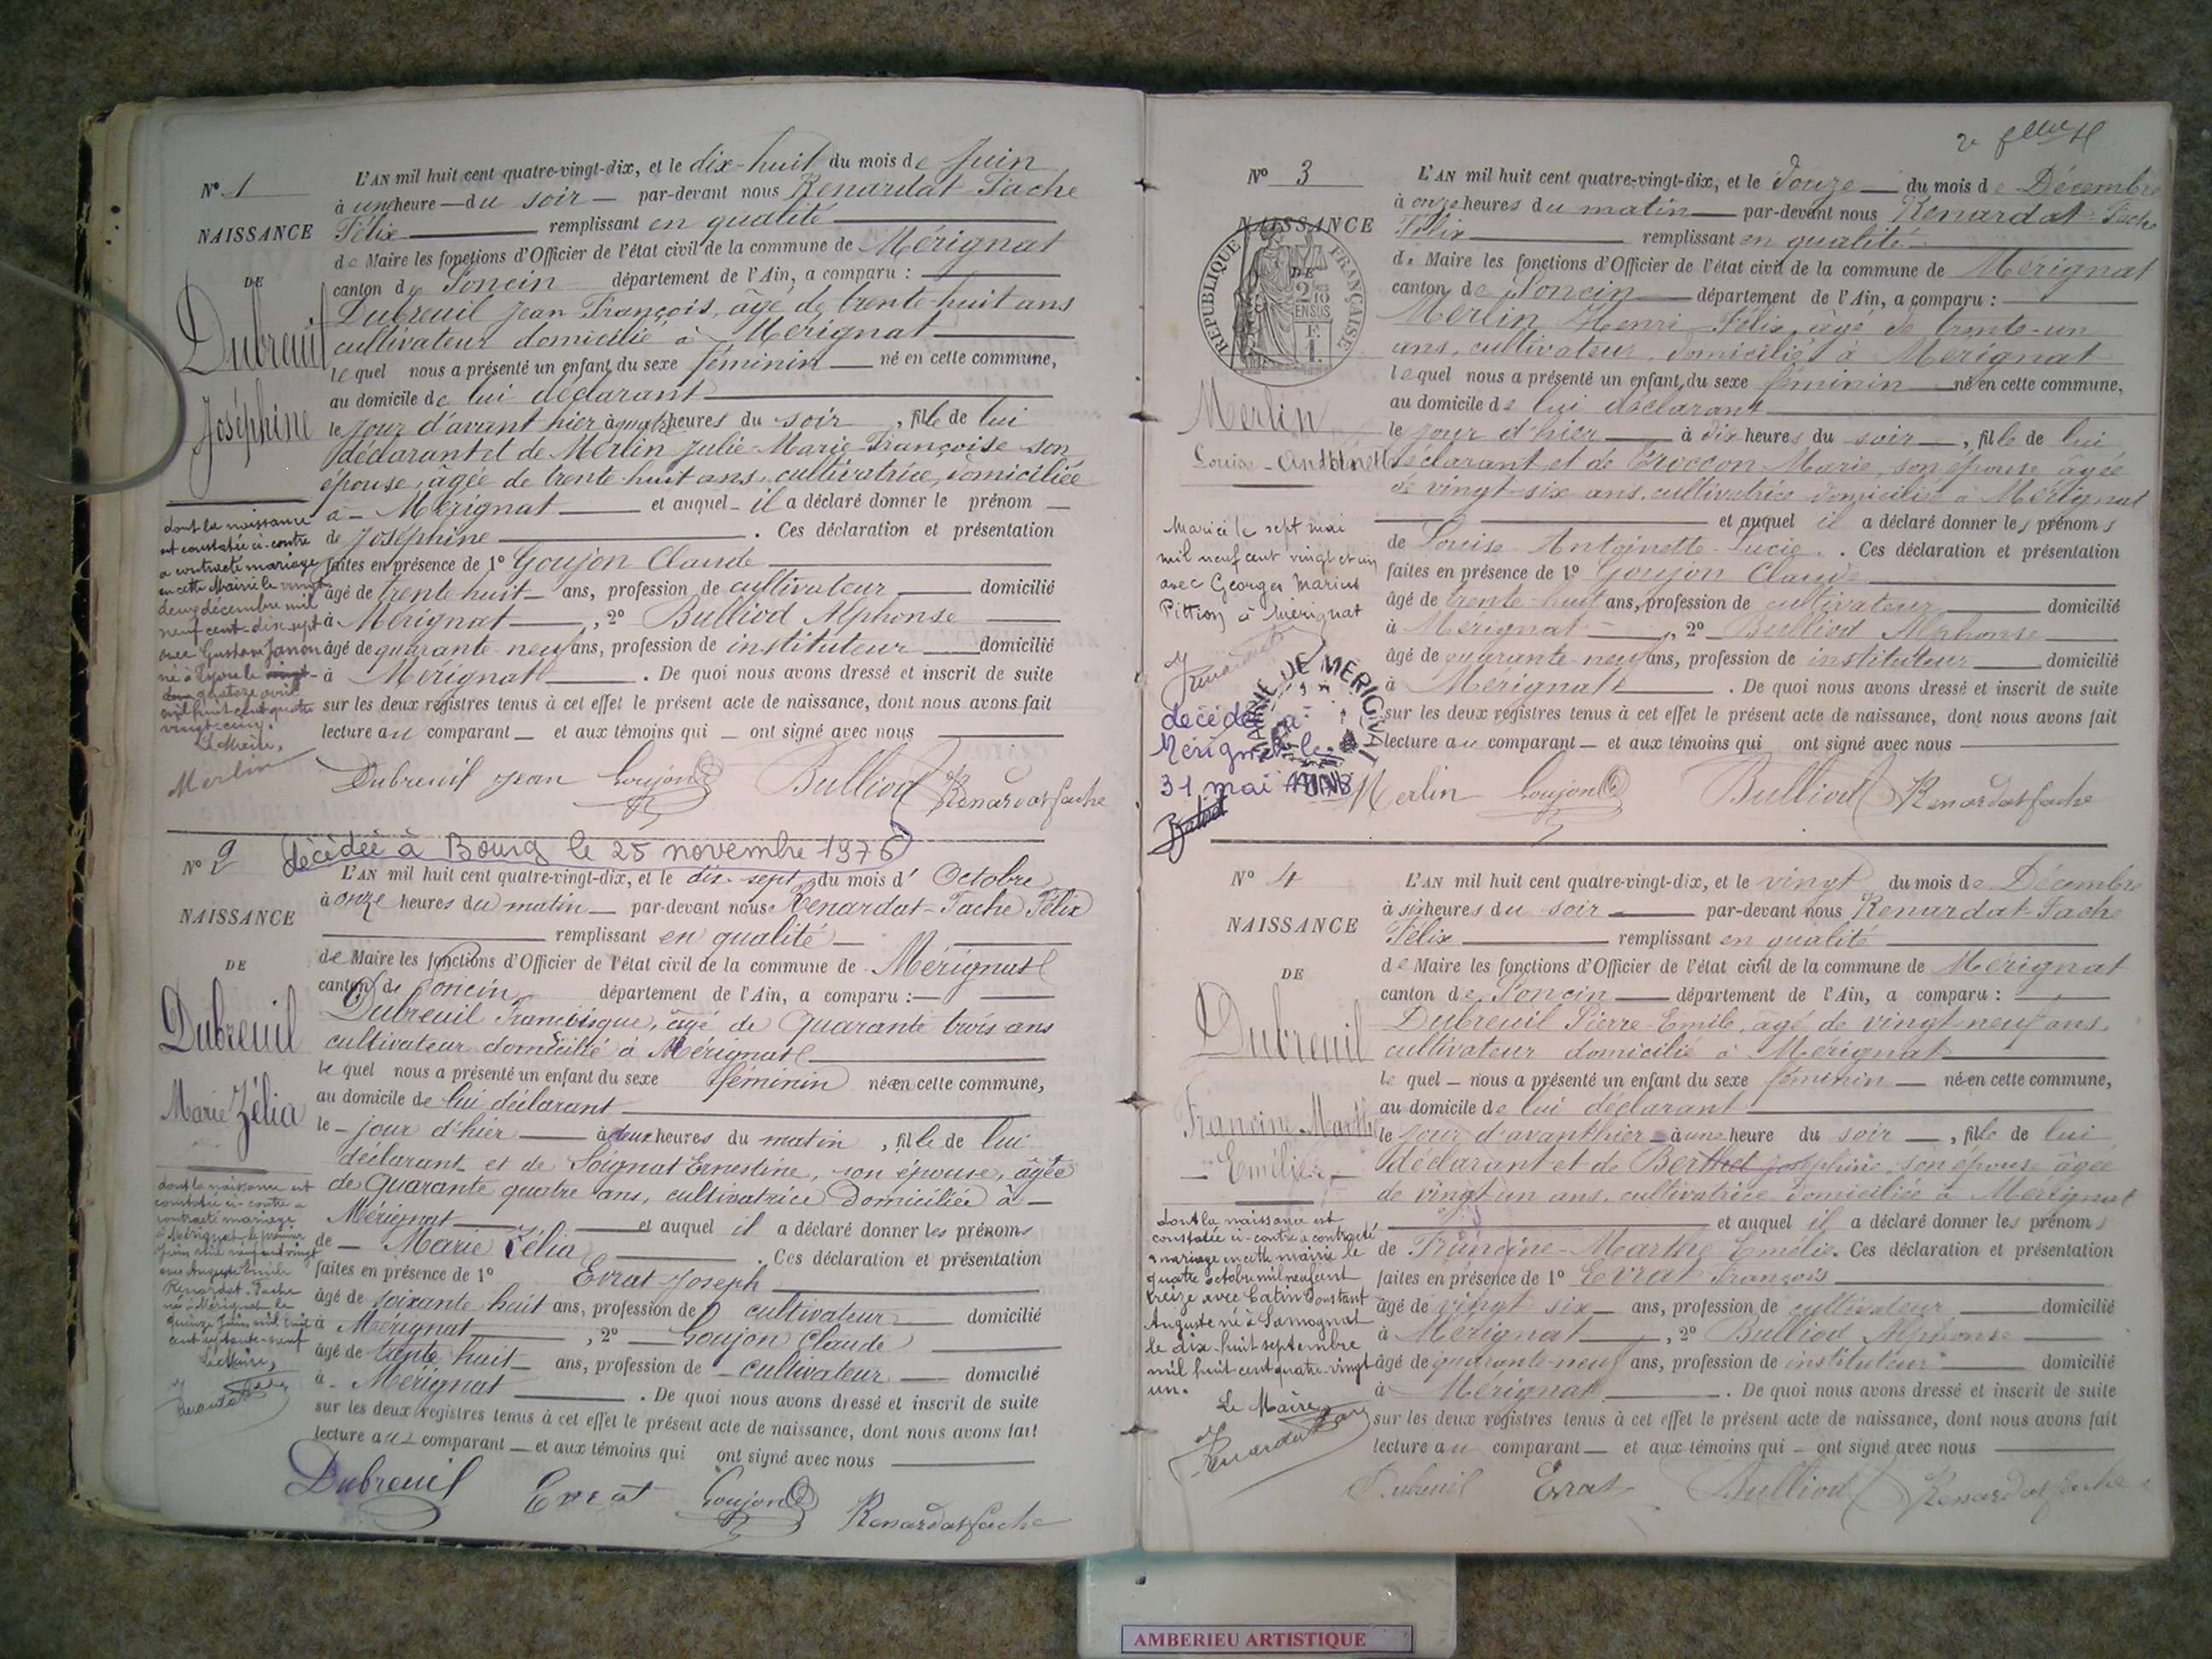 N° 1
NAISSANCE
DE
Dubreuil
Joséphine
L'AN mil huit cent quatre-vingt-dix, et le dix-huit du mois de Juin
à une heure du soir par-devant nous Renardat-Fache
Félix remplissant en qualité
de Maire les fonctions d'Officier de l'état civil de la commune de Mérignat
canton de Poncin département de l'Ain, a comparu :
Dubreuil Jean François, âgé de trente-huit ans
cultivateur domicilié à Mérignat
lequel nous a présenté un enfant du sexe féminin né en cette commune,
au domicile de lui déclarant
le jour d'avant hier à quatre heures du soir, fille de lui
déclarant et de Merlin Julie-Marie-Françoise son
épouse, âgée de trente-huit ans, cultivatrice, domiciliée
à Mérignat et auquel il a déclaré donner le prénom
de Joséphine . Ces déclaration et présentation
faites en présence de 1° Goujon Claude
âgé de trente huit ans, profession de cultivateur domicilié
à Mérignat, 2° Bulliod Alphonse
âgé de quarante-neuf ans, profession de instituteur domicilié
à Mérignat . De quoi nous avons dressé et inscrit de suite
sur les deux registres tenus à cet effet le présent acte de naissance, dont nous avons fait
lecture au comparant et aux témoins qui ont signé avec nous
Dubreuil Jean Goujon C Bulliod Renardat fache
dont la naissance
est constatée ci-contre
a contracté mariage
en cette Mairie le vingt
deux décembre mil
neuf cent-dix-sept
avec Gustave Janon
né à Lyon le vingt
deux quatorze avril
mil huit cent quatre
vingt-cinq.
Le Maire,
Merlin
N° 2
décédée à Bourg le 25 novembre 1976
NAISSANCE
DE
Dubreuil
Marie Zélia
L'AN mil huit cent quatre-vingt-dix, et le dix-sept du mois d'Octobre
à onze heures du matin par-devant nous Renardat-Fache Félix
remplissant en qualité
de Maire les fonctions d'Officier de l'état civil de la commune de Mérignat
canton de Poncin département de l'Ain, a comparu :
Dubreuil Francisque, âgé de Quarante trois ans
cultivateur domicilié à Mérignat
lequel nous a présenté un enfant du sexe féminin né en cette commune,
au domicile de lui déclarant
le jour d'hier à deux heures du matin, fille de lui
déclarant et de Soignat Ernestine, son épouse, âgée
de Quarante quatre ans, cultivatrice Domiciliée à
Mérignat et auquel il a déclaré donner les prénoms
de Marie Zélia . Ces déclaration et présentation
faites en présence de 1° Evrat Joseph
âgé de soixante huit ans, profession de cultivateur domicilié
à Mérignat, 2° Goujon Claude
âgé de trente huit ans, profession de cultivateur domicilié
à Mérignat . De quoi nous avons dressé et inscrit de suite
sur les deux registres tenus à cet effet le présent acte de naissance, dont nous avons fait
lecture aux comparant et aux témoins qui ont signé avec nous
Dubreuil Evrat Goujon C Renardat fache
dont la naissance est
constatée ci-contre a
contracté mariage
à Mérignat le premier
Juin mil neuf cent vingt
avec Auguste Emile
Renardat-Fache
né à Mérignat le
quinze Juin mil huit
cent septante-neuf
Le Maire,
2e feuillet
N° 3
NAISSANCE
DE
REPUBLIQUE FRANÇAISE
Merlin
Louise-Antoinette
L'AN mil huit cent quatre-vingt-dix, et le Douze du mois de Décembre
à onze heures du matin par-devant nous Renardat-Fache
Félix remplissant en qualité
de Maire les fonctions d'Officier de l'état civil de la commune de Mérignat
canton de Poncin département de l'Ain, a comparu :
Merlin Henri-Félix, âgé de trente-un
ans, cultivateur, domicilié à Mérignat
lequel nous a présenté un enfant du sexe féminin né en cette commune,
au domicile de lui déclarant
le jour d'hier à dix heures du soir, fille de lui
déclarant et de Marie, son épouse âgée
de vingt-six ans, cultivatrice domiciliée à Mérignat
et auquel il a déclaré donner les prénoms
de Louise Antoinette Lucie . Ces déclaration et présentation
faites en présence de 1° Goujon Claude
âgé de trente-huit ans, profession de cultivateur domicilié
à Mérignat, 2° Bulliod Alphonse
âgé de quarante-neuf ans, profession de instituteur domicilié
à Mérignat . De quoi nous avons dressé et inscrit de suite
sur les deux registres tenus à cet effet le présent acte de naissance, dont nous avons fait
lecture au comparant et aux témoins qui ont signé avec nous
Merlin Goujon C Bulliod Renardat fache
Mariée le sept mai
mil neuf cent vingt et un
avec Georges Marius
Pittion à Mérignat
MAIRIE DE MERIGNAT
AIN
décédée à
Mérignat le
31 mai
N° 4
NAISSANCE
DE
Dubreuil
Francine-Marthe
Emélie
L'AN mil huit cent quatre-vingt-dix, et le vingt du mois de Décembre
à six heures du soir par-devant nous Renardat-Fache
Félix remplissant en qualité
de Maire les fonctions d'Officier de l'état civil de la commune de Mérignat
canton de Poncin département de l'Ain, a comparu :
Dubreuil Pierre-Emile, âgé de vingt-neuf ans,
cultivateur domicilié à Mérignat
lequel nous a présenté un enfant du sexe féminin né en cette commune,
au domicile de lui déclarant
le jour d'avant hier à une heure du soir, fille de lui
déclarant et de Berthet Joséphine, son épouse âgée
de vingt un ans, cultivatrice domiciliée à Mérignat
et auquel il a déclaré donner les prénoms
de Francine-Marthe Emélie. Ces déclaration et présentation
faites en présence de 1° Evrat François
âgé de vingt six ans, profession de cultivateur domicilié
à Mérignat, 2° Bulliod Alphonse
âgé de quarante-neuf ans, profession de instituteur domicilié
à Mérignat . De quoi nous avons dressé et inscrit de suite
sur les deux registres tenus à cet effet le présent acte de naissance, dont nous avons fait
lecture au comparant et aux témoins qui ont signé avec nous
Dubreuil Evrat Bulliod Renardat fache
dont la naissance est
constatée ci-contre a contracté
mariage en cette mairie le
quatre octobre mil neuf cent
treize avec Catin Constant
Auguste né à Samognat
le dix-huit septembre
mil huit cent quatre-vingt
un.
Le Maire
AMBERIEU ARTISTIQUE